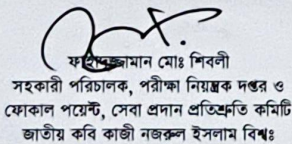 ফাহিদুজ্জামান মোঃ শিবলী
সহকারী পরিচালক, পরীক্ষা নিয়ন্ত্রক দপ্তর ও
ফোকাল পয়েন্ট, সেবা প্রদান প্রতিশ্রুতি কমিটি
জাতীয় কবি কাজী নজরুল ইসলাম বিশ্বঃ